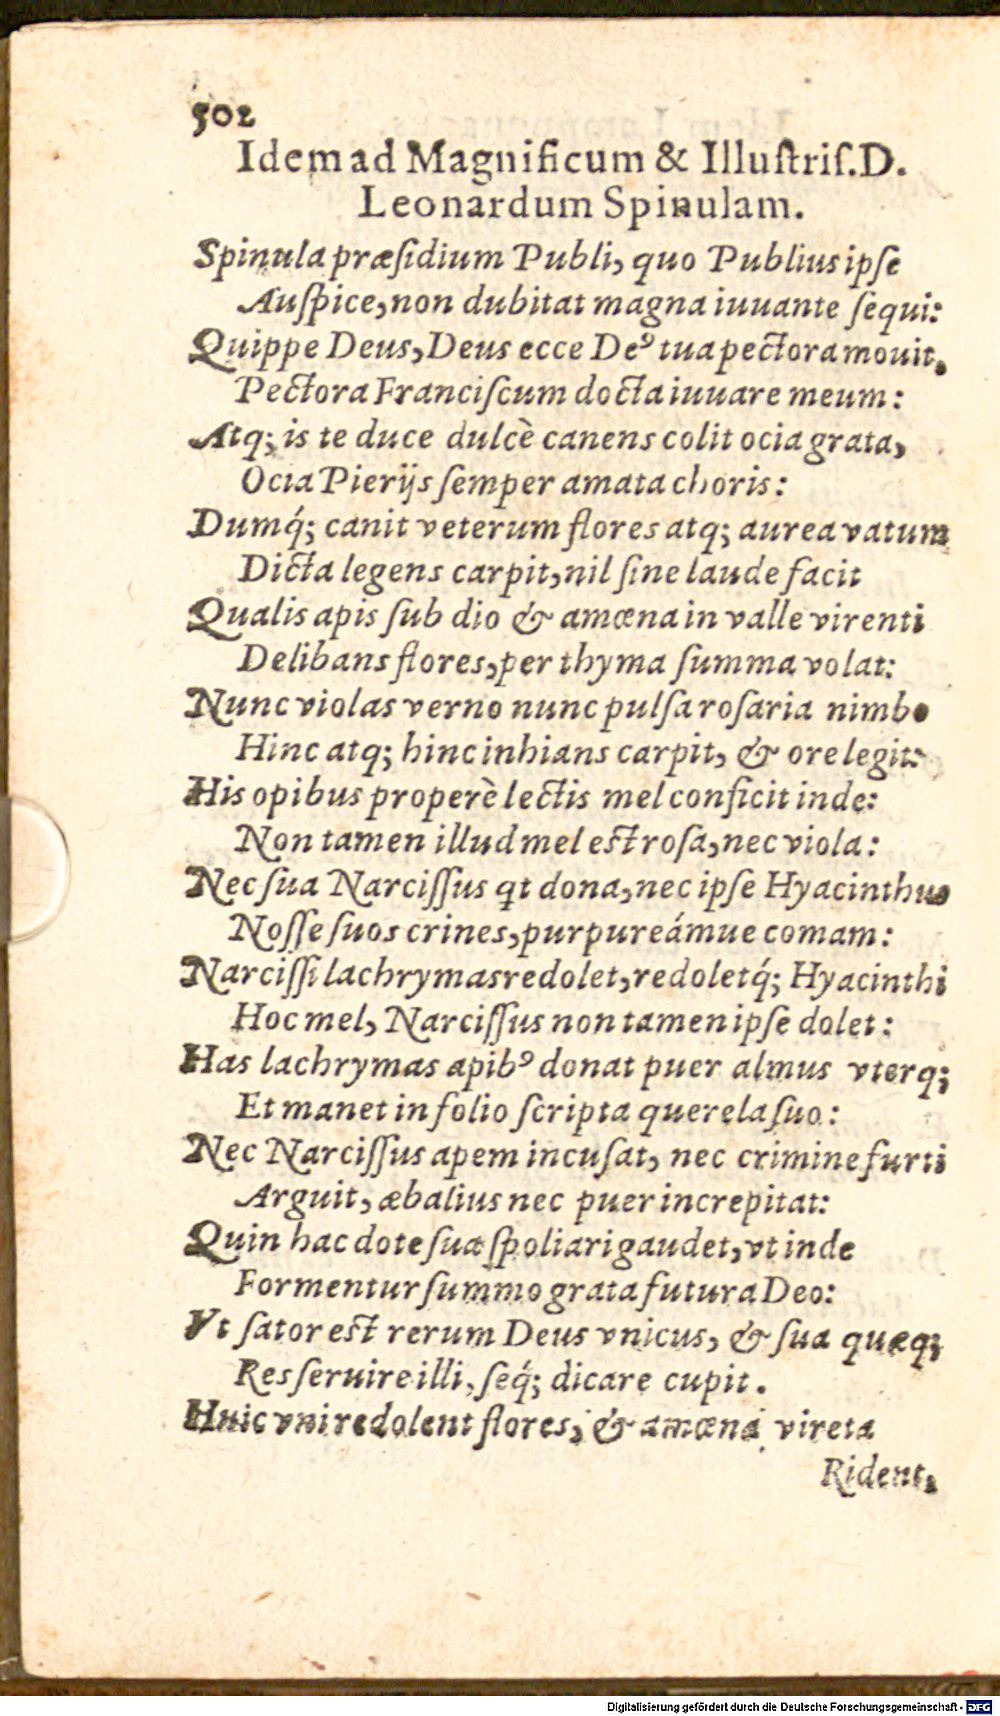 502
Idem ad Magnificum & Illuſtriſ.D.
Leonardum Spinulam.
Spinula præſidium Publi, quo Publius ipſe
Auſpice, non dubitat magna iuuante ſequi:
Quippe Deus, Deus ecce Deꝰ tua pectora mouit,
Pectora Franciſcum docta iuuare meum:
Atq; is te duce dulcè canens colit ocia grata,
Ocia Pierijs ſemper amata choris:
Dumq́; canit veterum flores atq; aurea vatum
Dicta legens carpit, nil ſine laude facit
Qualis apis ſub dio & amœna in valle virenti
Delibans flores, per thyma ſumma volat:
Nunc violas verno nunc pulſa roſaria nimbo
Hinc atq; hinc inhians carpit, & ore legit:
His opibus properè lectis mel conficit inde:
Non tamen illud mel eſt roſa, nec viola:
Nec ſua Narciſſus qt dona, nec ipſe Hyacinthus
Noſſe ſuos crines, purpureámue comam:
Narciſſi lachrymas redolet, redoletq́; Hyacinthi
Hoc mel, Narciſſus non tamen ipſe dolet:
Has lachrymas apibꝰ donat puer almus vterq;
Et manet in folio ſcripta querela ſuo:
Nec Narciſſus apem incuſat, nec crimine furti
Arguit, æbalius nec puer increpitat:
Quin hac dote ſua ſpoliari gaudet, vt inde
Formentur ſummo grata futura Deo:
Vt ſator eſt rerum Deus vnicus, & ſua quæq;
Res ſeruire illi, ſeq́; dicare cupit.
Huic vni redolent flores, & amœna vireta
Rident,
Digitalisierung gefördert durch die Deutsche Forschungsgemeinschaft - DFG